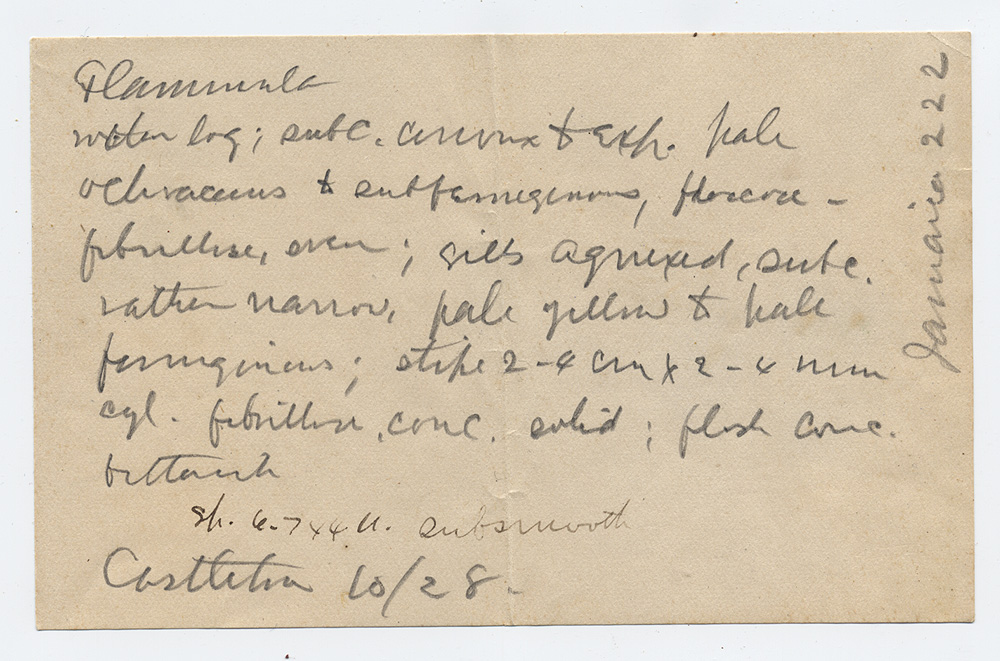 Flammula
rotten log; subc. convex to exp. pale
ochraceous to subferruginous, floccose-
fibrillose, even; gills adnexed, subc.
rather narrow, pale yellow to pale
ferruginous; stipe 2-4 cm x 2-4 mm
cyl. fibrillose, conc. solid; flesh conc.
bitterish
Sp. 6-7x4 u. subsmooth
Castleton 10/28-
Jamaica 222